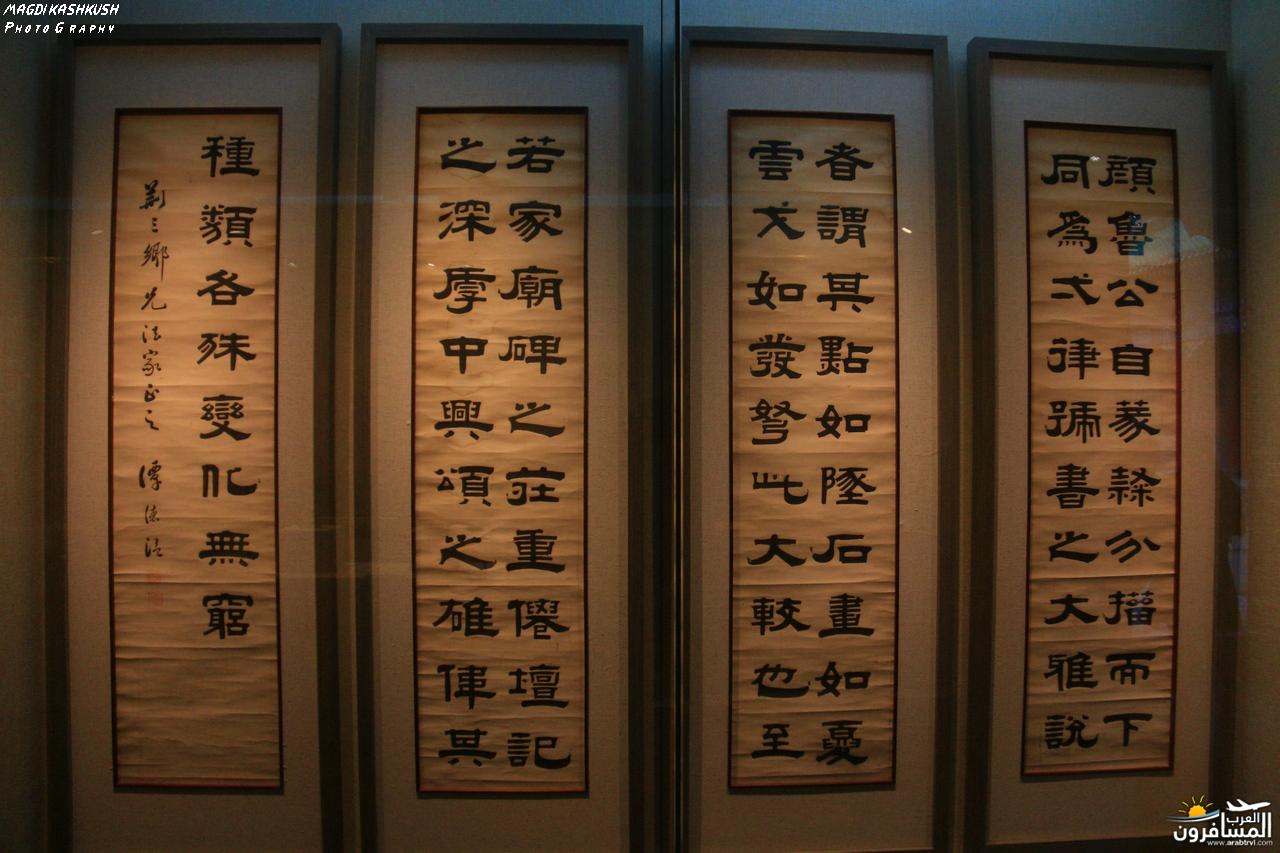 MAGDI KASHKUSH
PHOTOGRAPHY
顏魯公自篆隸分而下
同爲弌律號書之大雅說
者謂其點如墜石畫如夏
雲戈如發弩此大較也至
若家廟碑之莊重僊壇記
之深厚中興頌之雄偉其
種類各殊變化無窮
三鄉兄法家正之 譚
العرب
المسافرون
www.arabtrvl.com